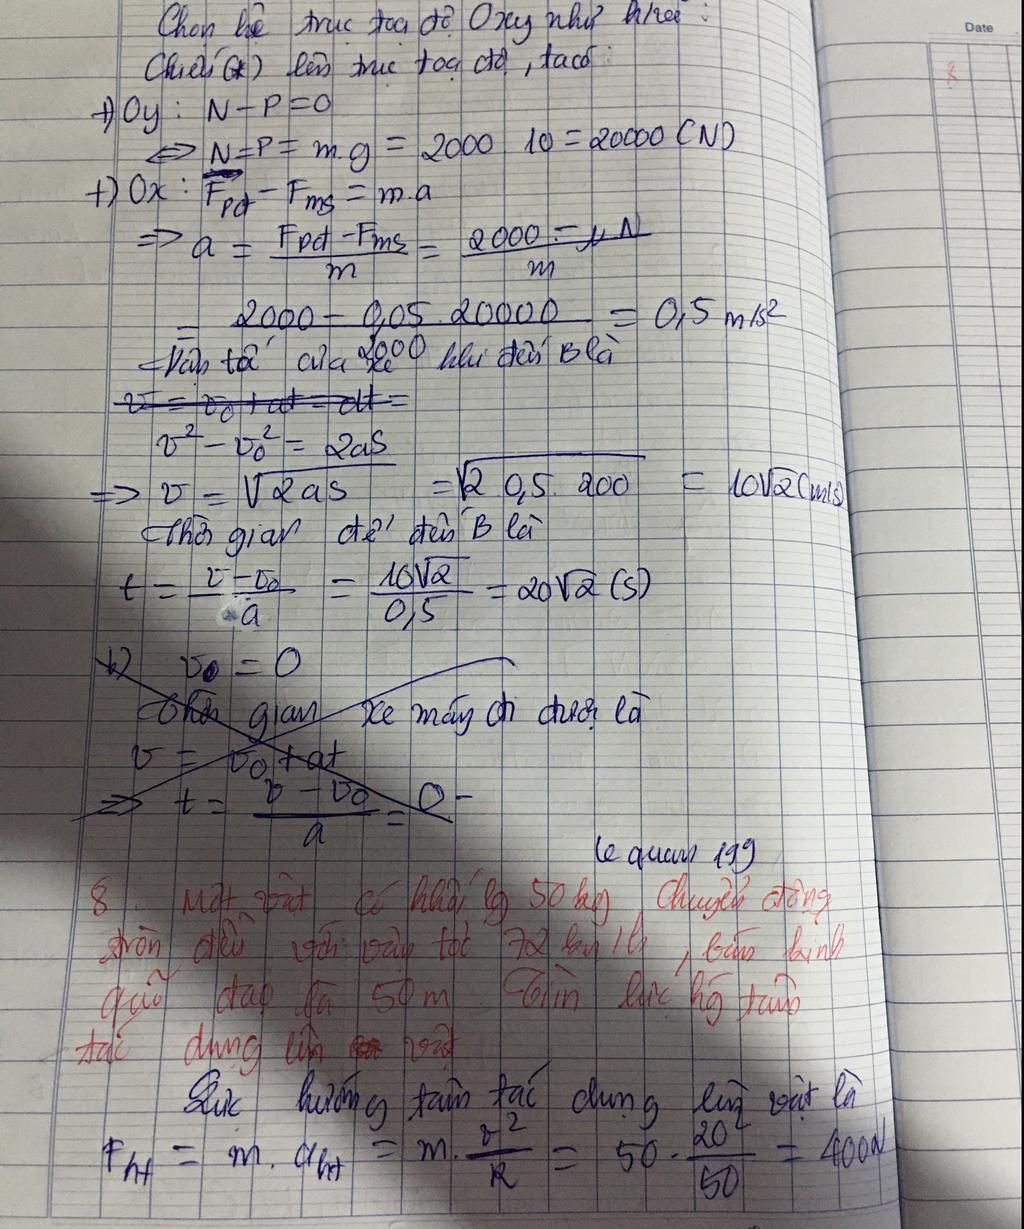 Chọn hệ trục tọa độ Oxy như hình:
Date
Chiếu (*) lên trục tọa độ, ta có:
8
+) Oy: N - P = 0
<=> N = P = m.g = 2000.10 = 20000 (N)
+) Ox: Fpđ - Fms = m.a
=> a = (Fpđ - Fms)/m = (2000 - μN)/m
= (2000 - 0,05.20000)/2000 = 0,5 m/s²
Vận tốc của xe khi đến B là
v = v₀ + at = at =
v² - v₀² = 2aS
=> v = √(2aS) = √(2.0,5.200) = 10√2 (m/s)
Thời gian để đến B là
t = (v - v₀)/a = 10√2/0,5 = 20√2 (s)
b) v₀ = 0
Thời gian xe máy đi được là
v = v₀ + at
=> t = (v - v₀)/a = 0 -
le quan 199
8 Một vật có khối lg 50kg chuyển động
tròn đều với vận tốc 72 km/h, bán kính
quỹ đạo là 50m. Tìm lực hg tâm
tác dụng lên vật
Lực hướng tâm tác dụng lên vật là
Fht = m.aht = m.v²/R = 50.20²/50 = 400N